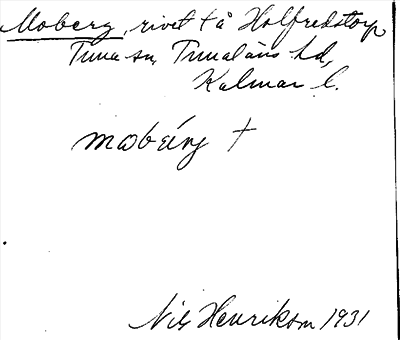 Moberg, rivet t å Halfredstorp
Tuna sn, Tunaläns hd,
Kalmar l.
mobärj †
Nils Henrikson 1931